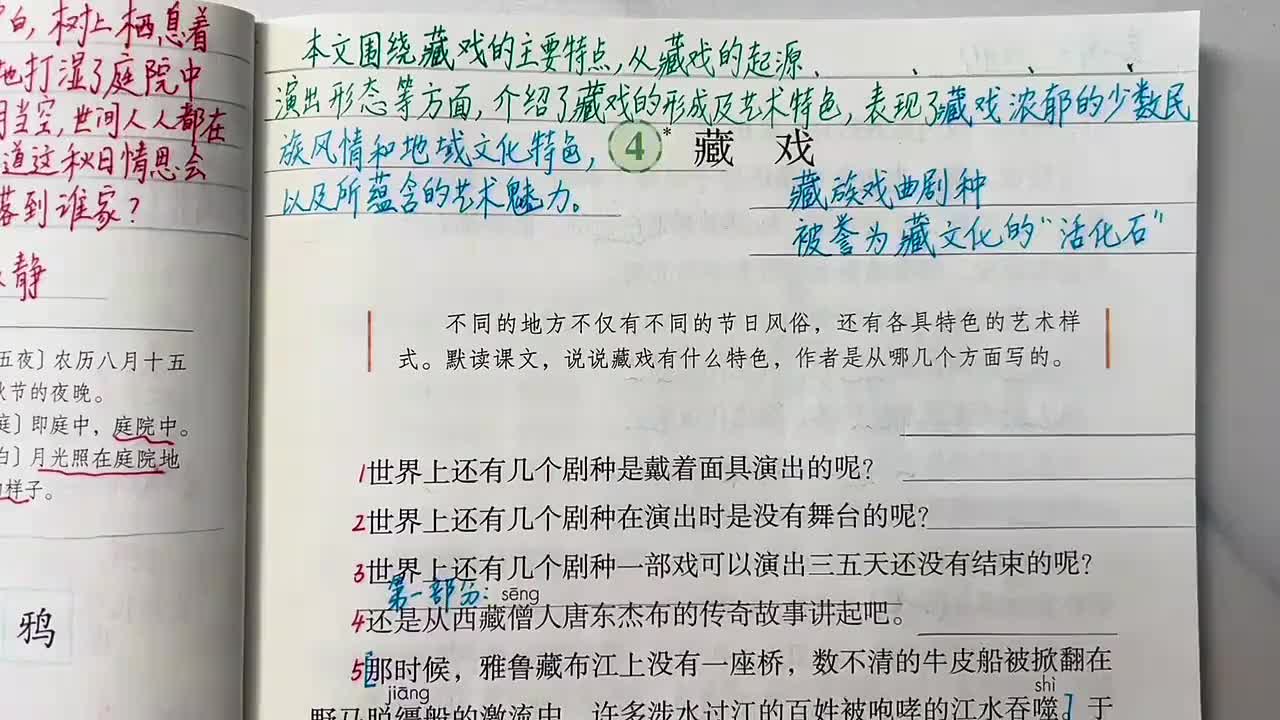 白，树上栖息着
地打湿了庭院中
月当空，世间人人都在
道这秋日情思会
落到谁家？
静
五夜〕农历八月十五
秋节的夜晚。
庭〕即庭中，庭院中。
白〕月光照在庭院地
样子。
鸦
本文围绕藏戏的主要特点，从藏戏的起源、 、 、 、
演出形态等方面，介绍了藏戏的形成及艺术特色，表现了藏戏浓郁的少数民
族风情和地域文化特色，
以及所蕴含的艺术魅力。
4* 藏 戏
藏族戏曲剧种
被誉为藏文化的“活化石”
不同的地方不仅有不同的节日风俗，还有各具特色的艺术样
式。默读课文，说说藏戏有什么特色，作者是从哪几个方面写的。
1世界上还有几个剧种是戴着面具演出的呢？
2世界上还有几个剧种在演出时是没有舞台的呢？
3世界上还有几个剧种一部戏可以演出三五天还没有结束的呢？
第一部分：
sēng
4还是从西藏僧人唐东杰布的传奇故事讲起吧。
5[那时候，雅鲁藏布江上没有一座桥，数不清的牛皮船被掀翻在
jiāng shì
野马脱缰般的激流中，许多涉水过江的百姓被咆哮的江水吞噬。]于